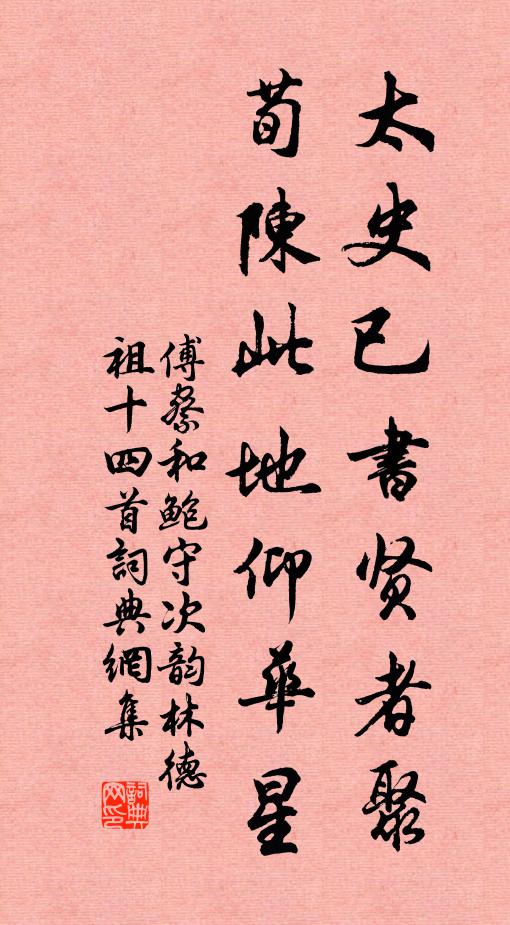 太史已書贤者聚
荀陳此地仰華星
傅察和鮑守次韵林德
祖十四首詞典網集
詞典网印